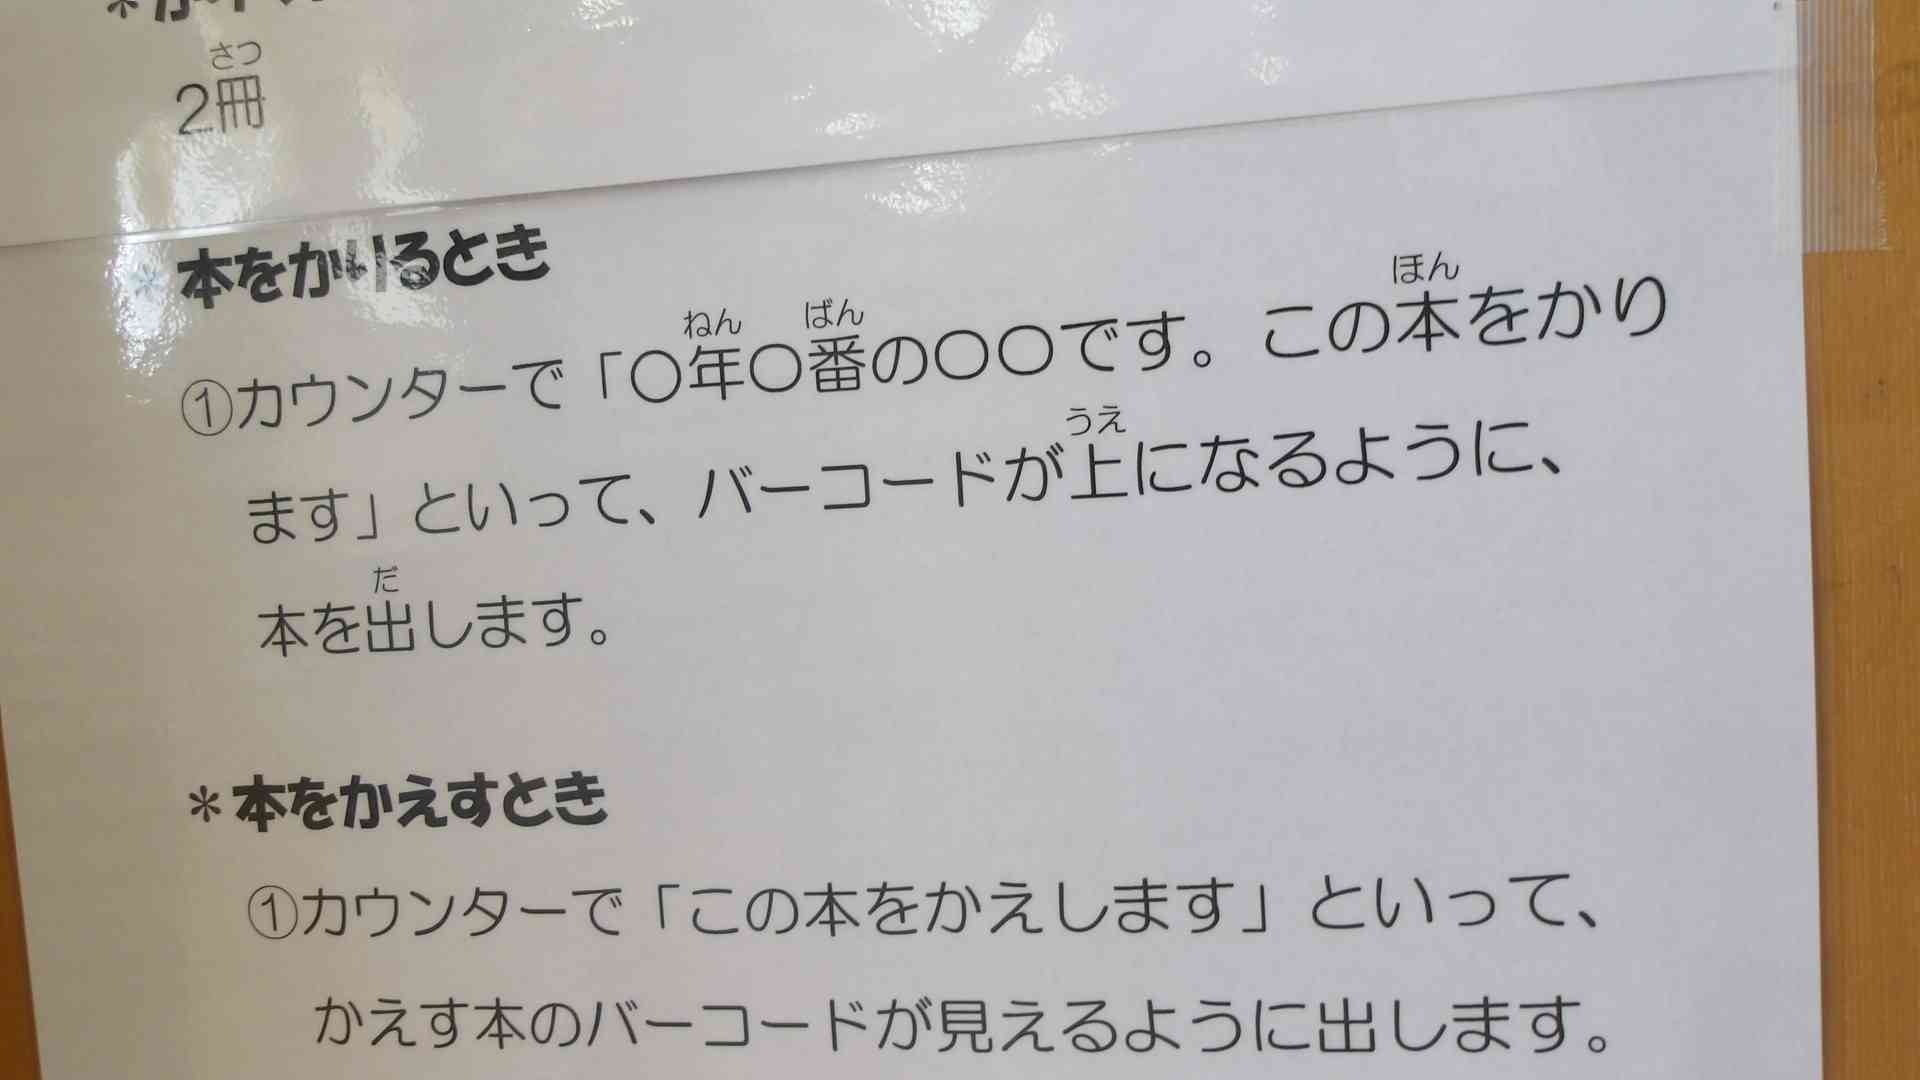 さつ
2冊
＊本をかりるとき
ねん ばん ほん
①カウンターで「〇年〇番の〇〇です。この本をかり
うえ
ます」といって、バーコードが上になるように、
だ
本を出します。
＊本をかえすとき
①カウンターで「この本をかえします」といって、
かえす本のバーコードが見えるように出します。